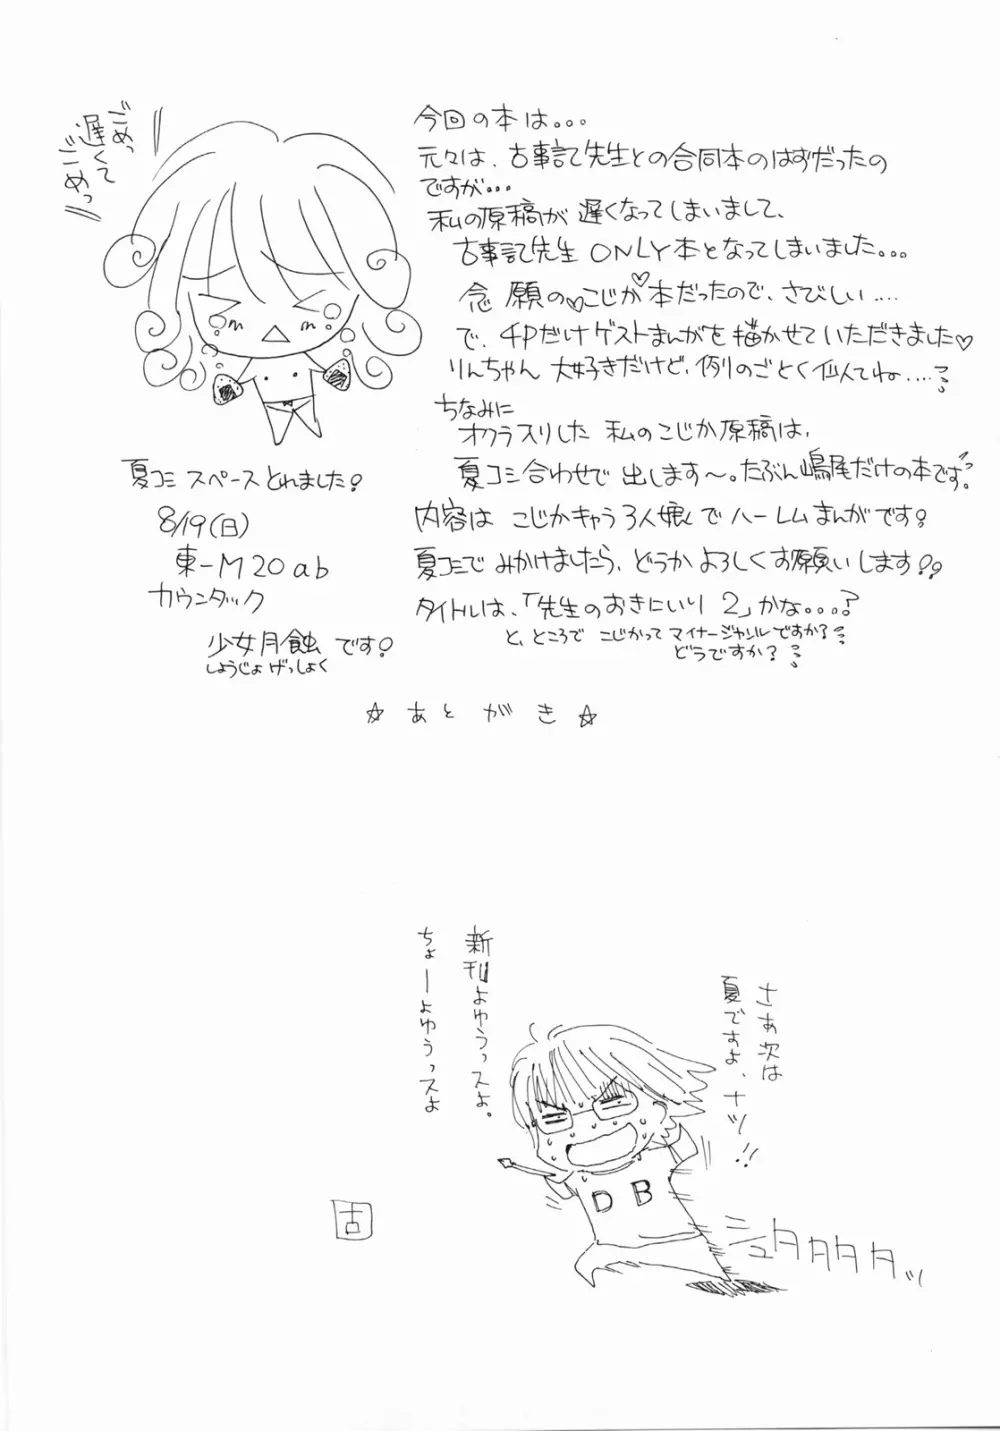 ごめっ
遅くて
ごめっ
今回の本は。。。
元々は、古事記先生との合同本のはずだったの
ですが...
私の原稿が遅くなってしまいまして、
古事記先生ONLY本となってしまいました。。。
念願の♡こじか♡本だったので、さびしい....
で、4Pだけゲストまんがを描かせていただきました♡
りんちゃん大好きだけど、例のごとく似てね....??
ちなみに
オクラスリした私のこじか原稿は、
夏コミ合わせで出します〜。たぶん嶋尾だけの本です。
内容はこじかキャラ3人娘でハーレムまんがです!
夏コミでみかけましたら、どうかよろしくお願いします!!
タイトルは、「先生のおきにいり2」かな。。。?
と、ところでこじかってマイナージャンルですか???
どうですか???
夏コミスペースとれました!
8/19(日)
東-M20ab
カウンタック
少女月蝕です!
しょうじょげっしょく
☆あとがき☆
さあ次は
夏ですよ、ナツ!!
新刊よゆうっスよ。
ちょーよゆうっスよ
DB
シュタタタタッ
古